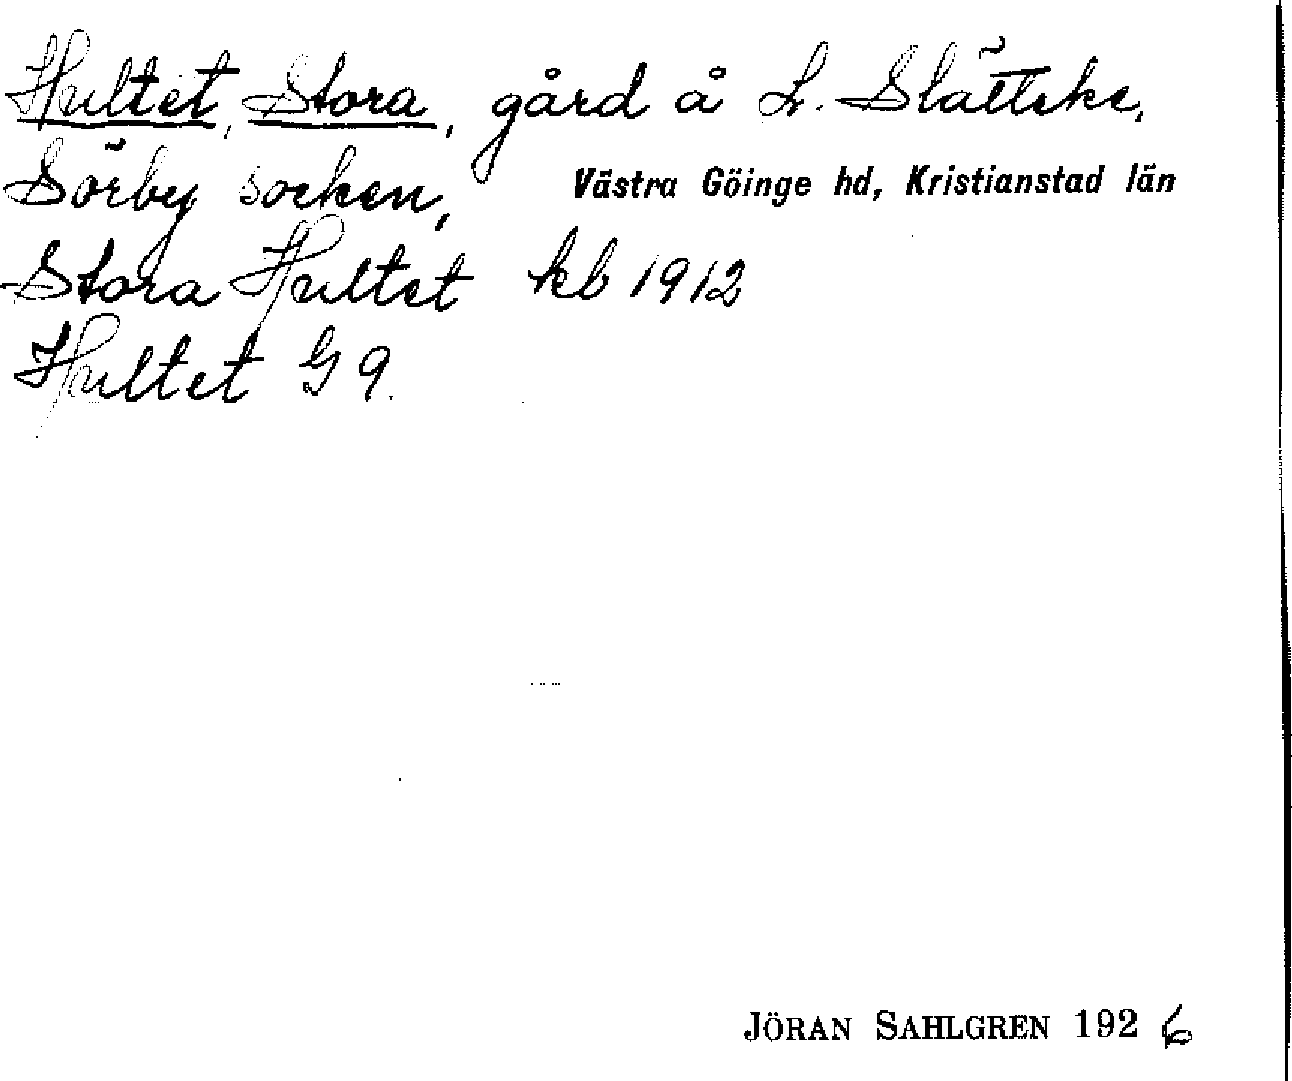 Hultet, Stora, gård å L. Slätteke,
Sörby socken, Västra Göinge hd, Kristianstad län
Stora Hultet kb 1912
Hultet G 9.
JÖRAN SAHLGREN 1926